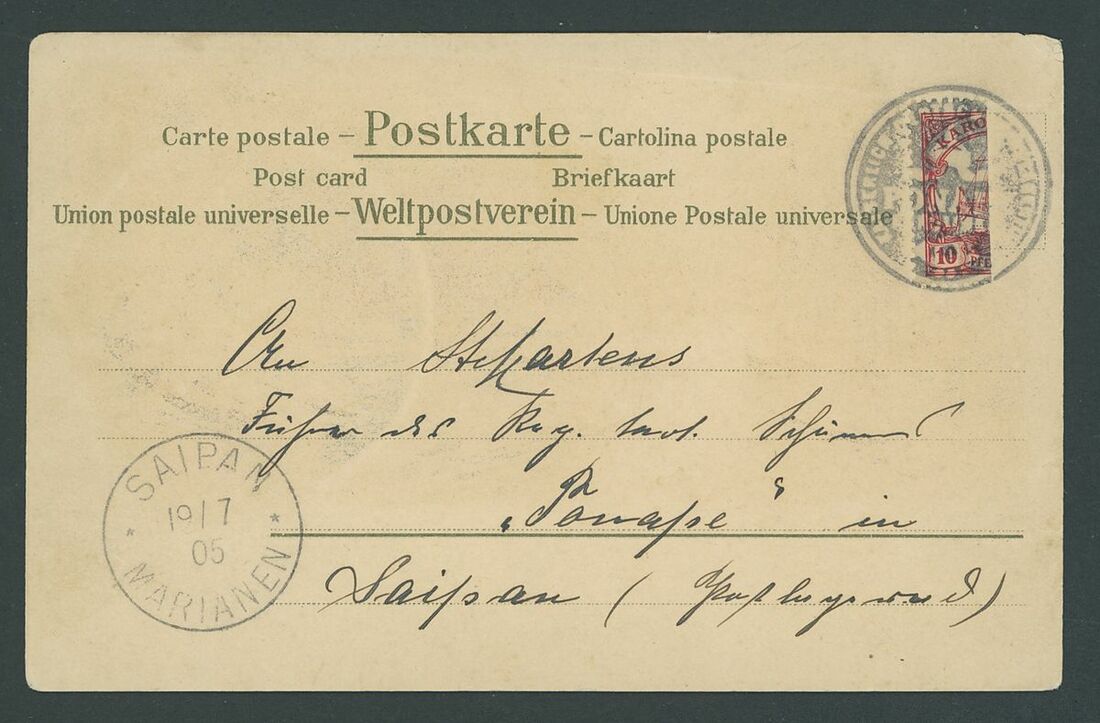 Carte postale – Postkarte – Cartolina postale
Post card Briefkaart
Union postale universelle – Weltpostverein – Unione Postale universale
KARO
10 PFE
An St. Martens
Führer des
„Ponape“ in
Saipan (
SAIPAN
19/7
05
* MARIANEN *